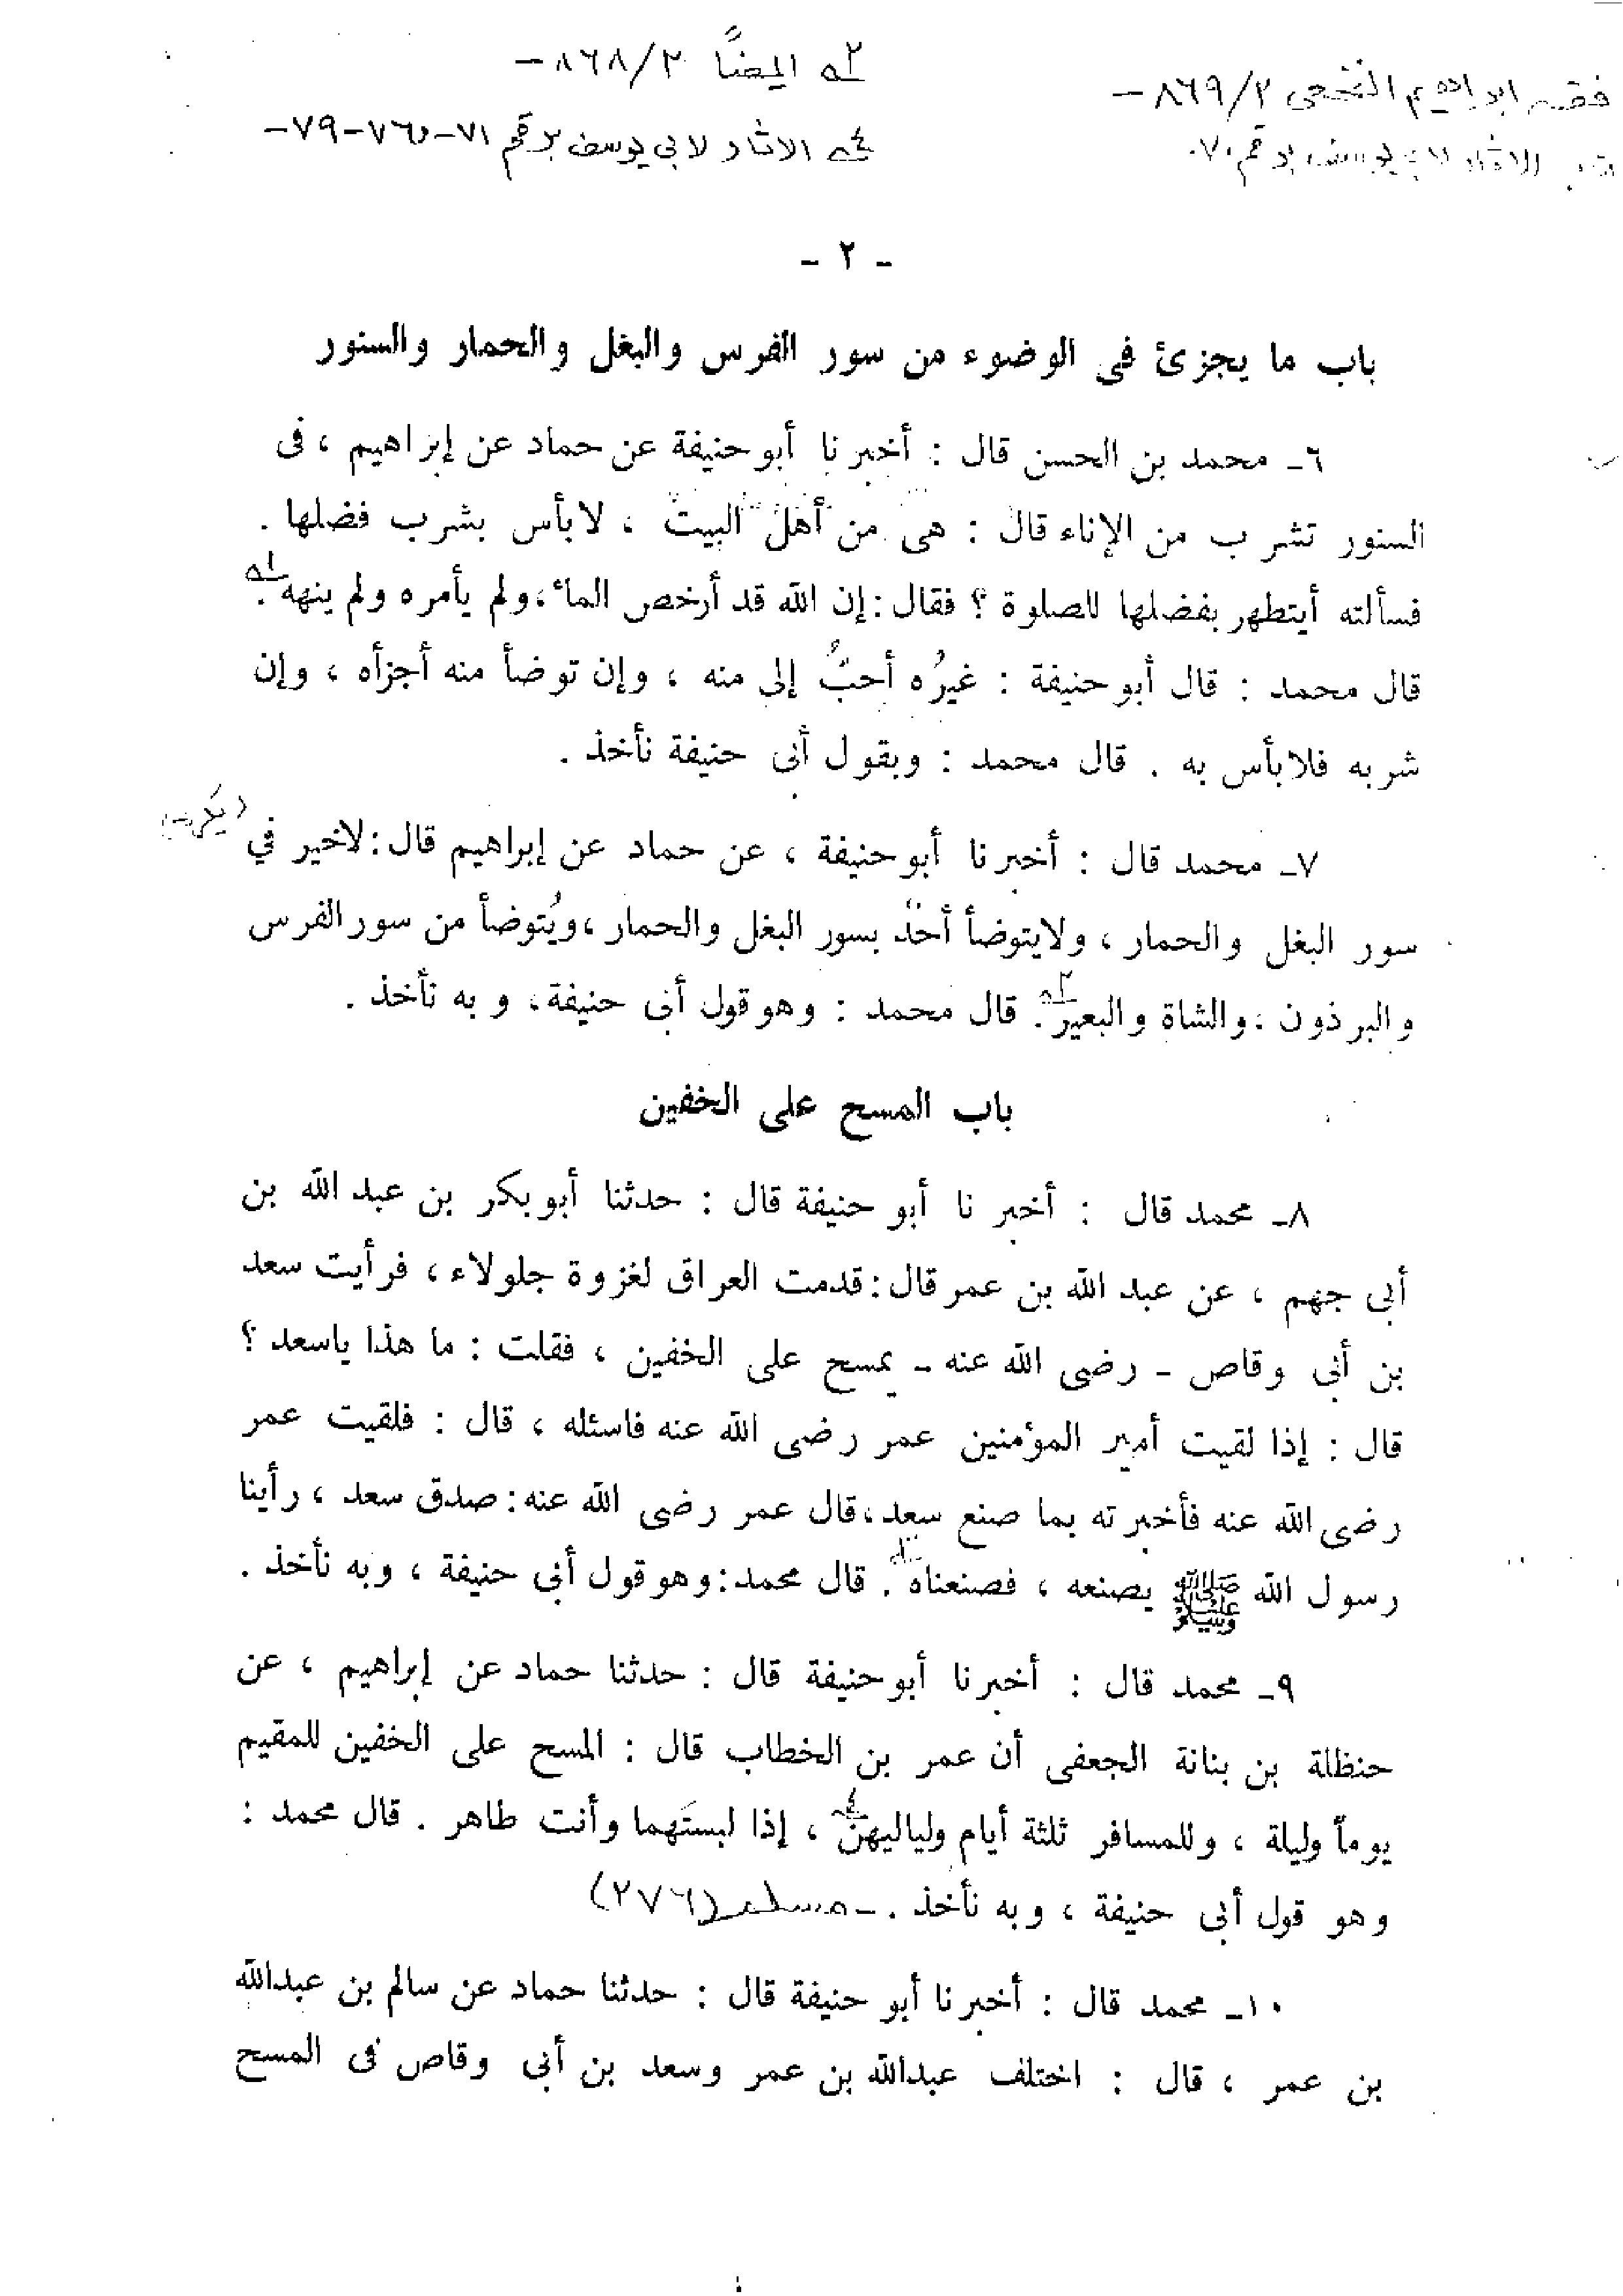 فقه ابراهيم النخعى ٢/٨٦٩-
الاثار لابى يوسف برقم ٧٠.
٢ه ايضًا ٢/٨٦٨-
٤ه الاثار لابي يوسف برقم ٧١-و٧٦-٧٩-
- ٢ -
باب ما يجزئ فى الوضوء من سور الفرس والبغل والحمار والسنور
٦- محمد بن الحسن قال : أخبرنا أبو حنيفة عن حماد عن إبراهيم ، فى
السنور تشرب من الإناء قال : هى من أهل البيت ، لابأس بشرب فضلها .
فسألته أيتطهر بفضلها للصلوة ؟ فقال : إن الله قد أرخص الماء ، ولم يأمره ولم ينهه .
قال محمد : قال أبو حنيفة : غيرُه أحبُّ إلى منه ، وإن توضأ منه أجزأه ، وإن
شربه فلابأس به . قال محمد : وبقول أبى حنيفة نأخذ .
٧- محمد قال : أخبرنا أبو حنيفة ، عن حماد عن إبراهيم قال : لاخير في
سور البغل والحمار ، ولايتوضأ أحدٌ بسور البغل والحمار ، ويُتوضأ من سور الفرس
والبرذون ، والشاة والبعير . قال محمد : وهو قول أبى حنيفة ، و به نأخذ .
باب المسح على الخفين
٨- محمد قال : أخبرنا أبو حنيفة قال : حدثنا أبوبكر بن عبد الله بن
أبى جهم ، عن عبد الله بن عمر قال : قدمت العراق لغزوة جلولاء ، فرأيت سعد
بن أبى وقاص - رضى الله عنه - يمسح على الخفين ، فقلت : ما هذا ياسعد ؟
قال : إذا لقيت أمير المؤمنين عمر رضى الله عنه فاسئله ، قال : فلقيت عمر
رضى الله عنه فأخبرته بما صنع سعد ، قال عمر رضى الله عنه : صدق سعد ، رأينا
رسول الله ﷺ يصنعه ، فصنعناه . قال محمد : وهو قول أبى حنيفة ، وبه نأخذ .
٩- محمد قال : أخبرنا أبو حنيفة قال : حدثنا حماد عن إبراهيم ، عن
حنظلة بن بنانة الجعفى أن عمر بن الخطاب قال : المسح على الخفين للمقيم
يوماً وليلة ، وللمسافر ثلثة أيام ولياليهنّ ، إذا لبستَهما وأنت طاهر . قال محمد :
وهو قول أبى حنيفة ، وبه نأخذ . - مسلم (٢٧٦)
١٠- محمد قال : أخبرنا أبو حنيفة قال : حدثنا حماد عن سالم بن عبدالله
بن عمر ، قال : اختلف عبدالله بن عمر وسعد بن أبى وقاص فى المسح